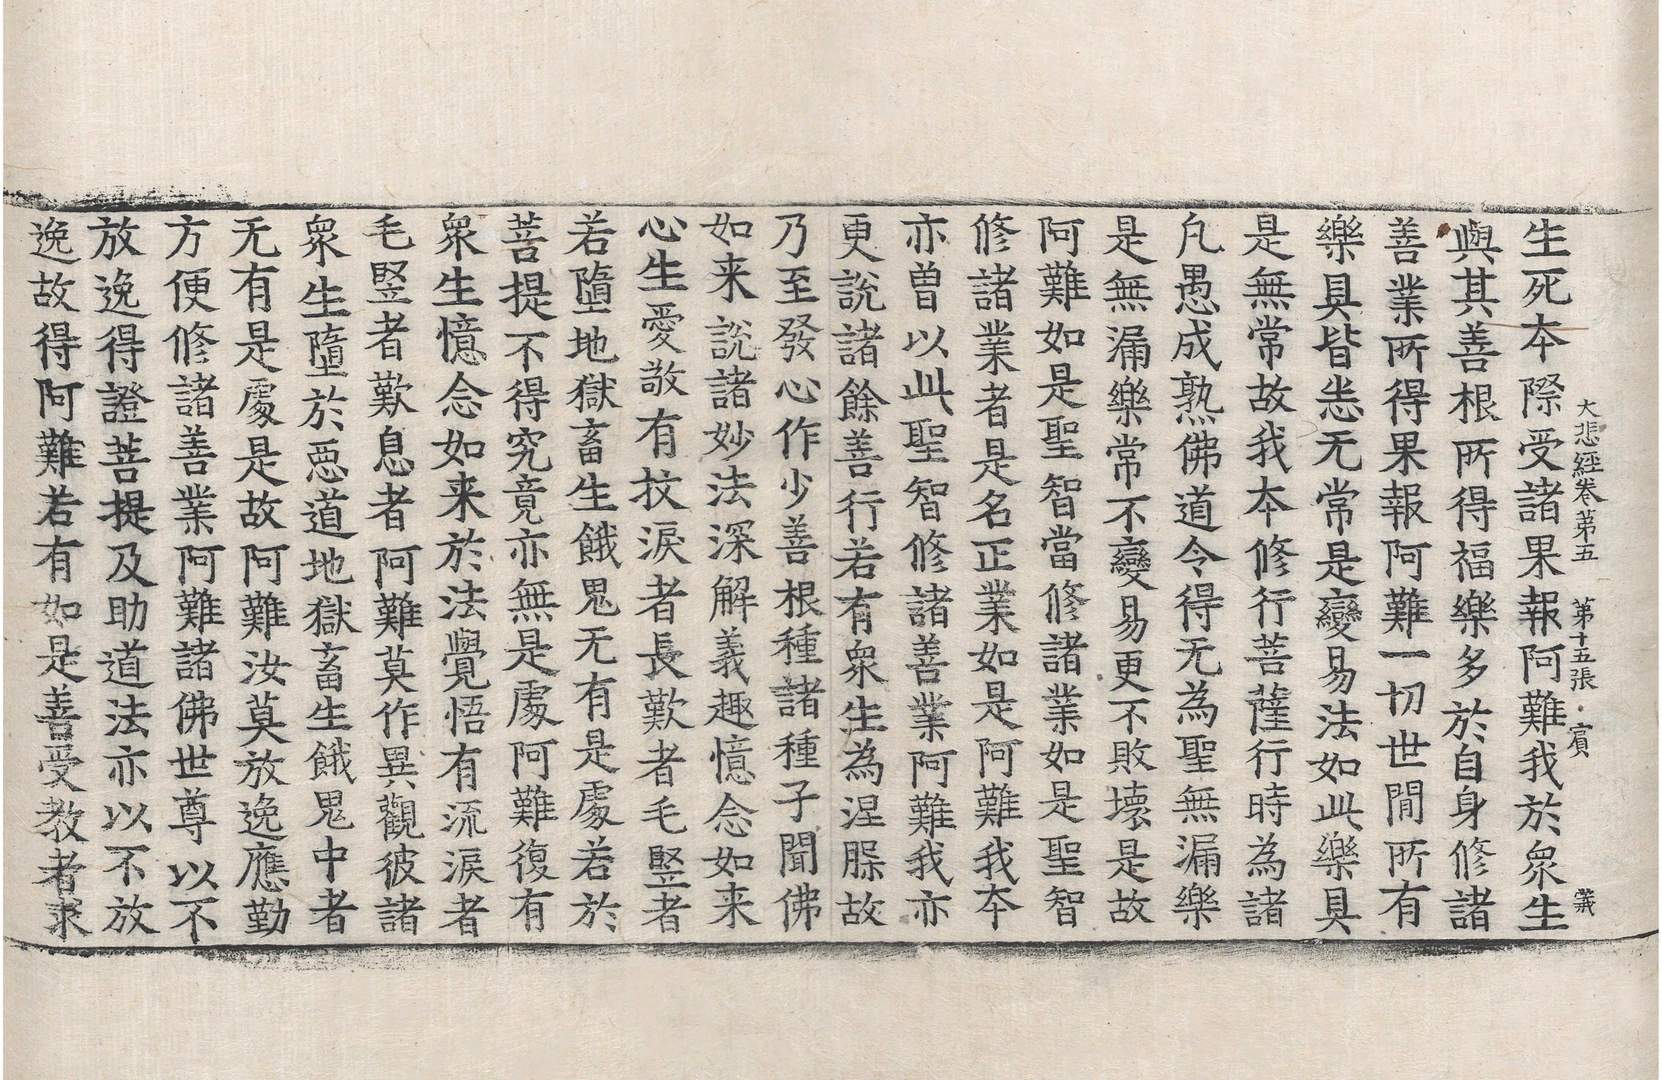 大悲經卷第五 第十五張 賓 義
生死本際受諸果報阿難我於衆生
與其善根所得福樂多於自身修諸
善業所得果報阿難一切世閒所有
樂具皆悉无常是變易法如此樂具
是無常故我本修行菩薩行時為諸
凡愚成熟佛道令得无為聖無漏樂
是無漏樂常不變易更不敗壞是故
阿難如是聖智當修諸業如是聖智
修諸業者是名正業如是阿難我本
亦曾以此聖智修諸善業阿難我亦
更說諸餘善行若有衆生為涅槃故
乃至發心作少善根種諸種子聞佛
如来說諸妙法深解義趣憶念如来
心生愛敬有抆淚者長歎者毛竪者
若墮地獄畜生餓鬼无有是處若於
菩提不得究竟亦無是處阿難復有
衆生憶念如来於法覺悟有流淚者
毛竪者歎息者阿難莫作異觀彼諸
衆生墮於惡道地獄畜生餓鬼中者
无有是處是故阿難汝莫放逸應勤
方便修諸善業阿難諸佛世尊以不
放逸得證菩提及助道法亦以不放
逸故得阿難若有如是善受教者求